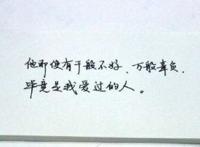 他即使有千般不好、万般辜负，
毕竟是我爱过的人。